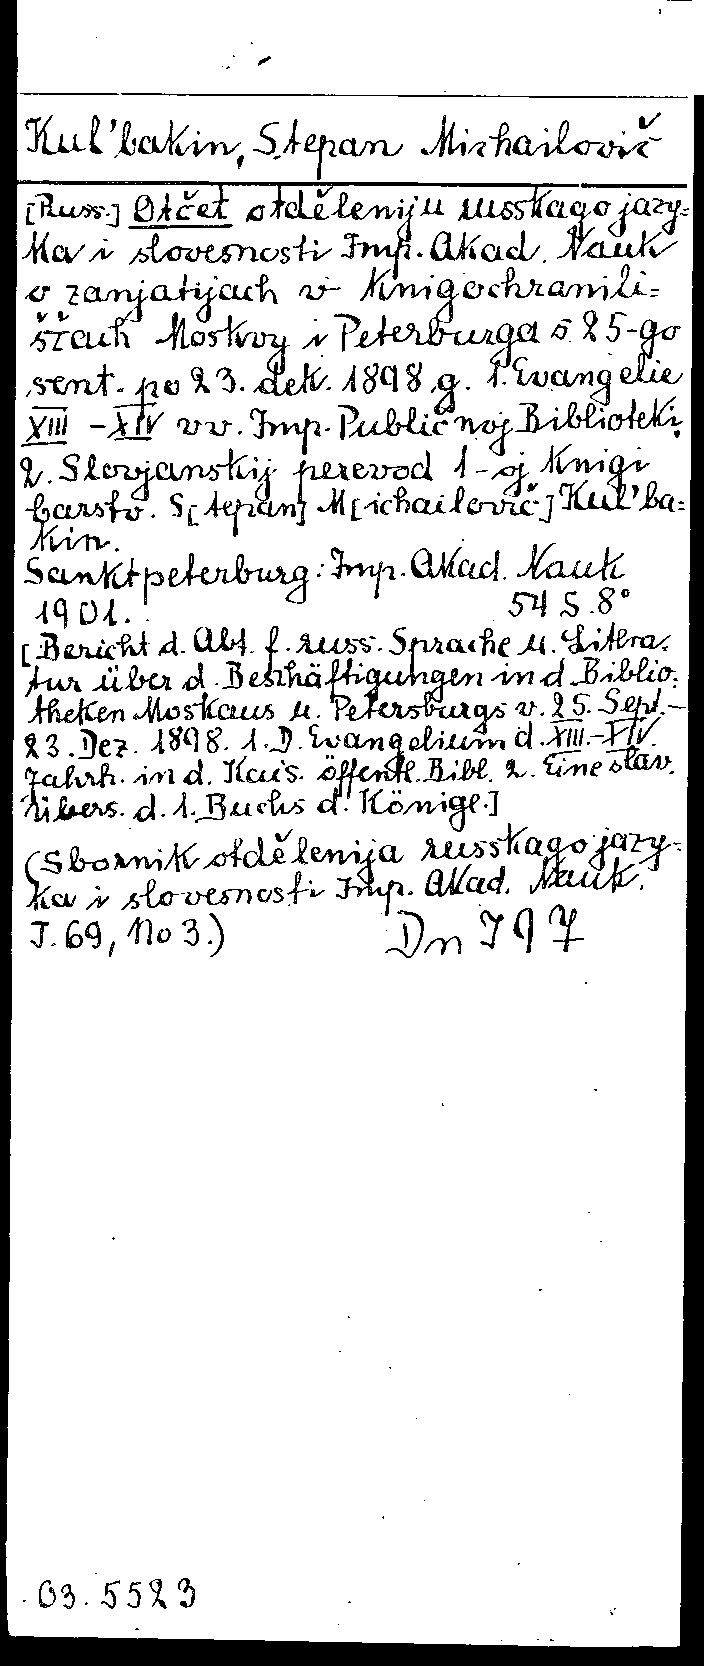 Kul'bakin, Stepan Michailovič
[Russ.] Otčet otděleniju russkago jazy-
ka i slovesnosti Imp. Akad. Nauk
o zanjatijach v knigochranili-
ščach Moskvy i Peterburga s 25-go
sent. po 23. dek. 1898 g. 1. Evangelie
XIII - XIV vv. Imp. Publičnoj Biblioteki.
2. Slovjanskij perevod 1-oj knigi
carstv. S[tepan] M[ichailovič] Kul'ba-
kin.
Sanktpeterburg: Imp. Akad. Nauk
1901. 54 S. 8°
[Bericht d. Abt. f. russ. Sprache u. Litera-
tur über d. Beschäftigungen in d. Biblio-
theken Moskaus u. Petersburgs v. 25. Sept.-
23. Dez. 1898. 1. D. Evangelium d. XIII.-XIV.
Jahrh. in d. Kais. öffentl. Bibl. 2. Eine slav.
Übers. d. 1. Buchs d. Könige.]
(Sbornik otdělenija russkago jazy-
ka i slovesnosti Imp. Akad. Nauk.
T. 69, No 3.) Dn 797
03. 5523